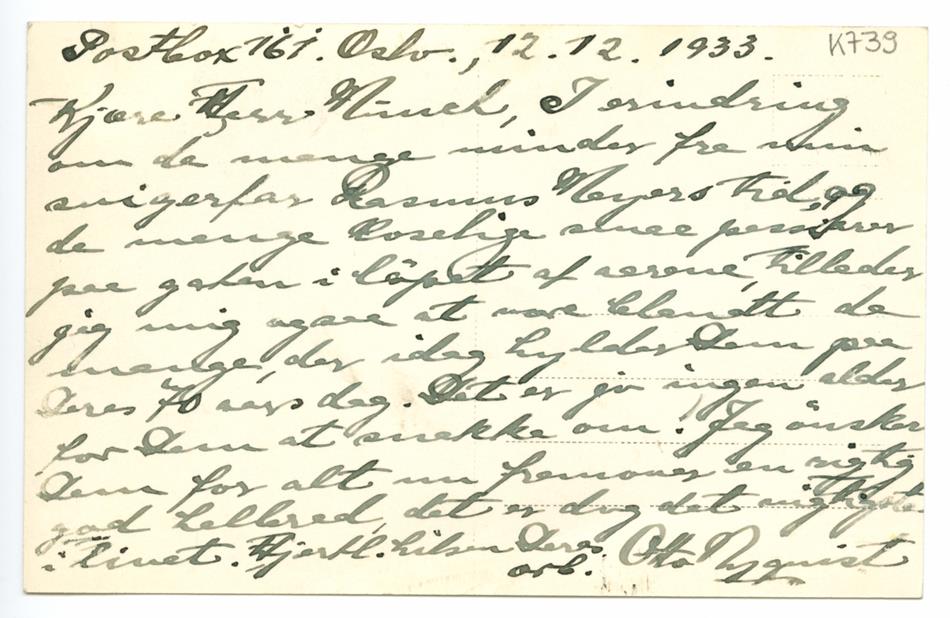 Postbox 161. Oslo., 12.12. 1933.
K739
Kjære Herr Münch, I erindring
om de mange minder fra min
svigerfar Rasmus Meyers tid, og
de mange koselige smaa passiarer
paa gaten i löpet af aarene, tillader
jeg mig ogsaa at være blandt de
mange, der idag hylder Dem paa
Deres 70 aars dag. Det er jo ingen alder
for Dem at snakke om! Jeg önsker
Dem for alt nu fremover en rigtig
god helbred, det er dog det vigtigste
i livet. Hjertl. hilsen Deres
arb. Otto Nyquist